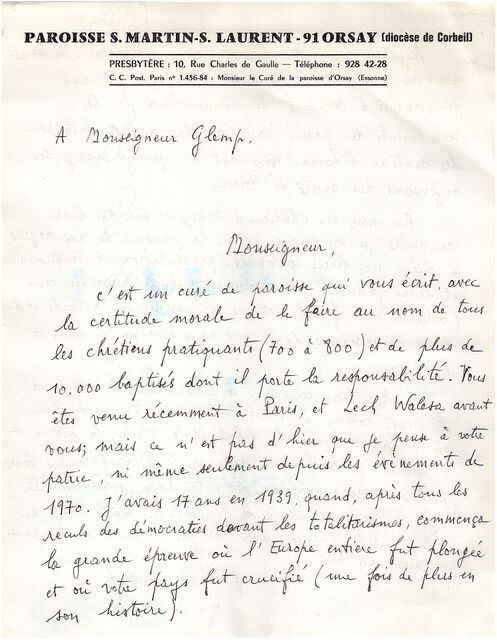 PAROISSE S. MARTIN-S. LAURENT - 91 ORSAY (diocèse de Corbeil)
PRESBYTÈRE : 10, Rue Charles de Gaulle — Téléphone : 928 42-28
C. C. Post. Paris nº 1.436-84 : Monsieur le Curé de la paroisse d'Orsay (Essonne)
A Monseigneur Glemp.
Monseigneur,
c'est un curé de paroisse qui vous écrit, avec
la certitude morale de le faire au nom de tous
les chrétiens pratiquants (700 à 800) et de plus de
10.000 baptisés dont il porte la responsabilité. Vous
êtes venu récemment à Paris, et Lech Walesa avant
vous; mais ce n'est pas d'hier que je pense à votre
patrie, ni même seulement depuis les évènements de
1970. J'avais 17 ans en 1939, quand, après tous les
reculs des démocraties devant les totalitarismes, commença
la grande épreuve où l'Europe entière fut plongée
et où votre pays fut crucifié (une fois de plus en
son histoire).